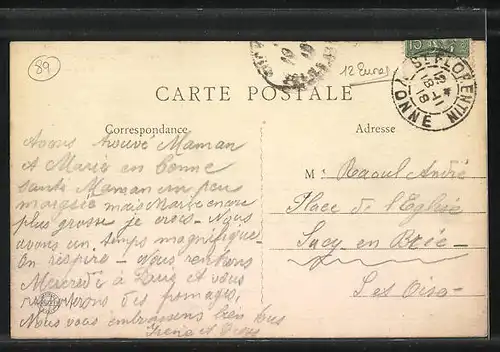 89
12 Euros
15 C
ST FLORENTIN
18-11
18
YONNE
CARTE POSTALE
Correspondance
Adresse
Avons trouvé Maman
et Marie en bonne
santé Maman un peu
maigrie mais Marie encore
plus grosse je crois - Nous
avons un temps magnifique -
On respire - Nous rentrons
Mercredi à et vous
des fromages,
Nous vous embrassons bien tous
Irène et
M. Raoul André
Place de l'Eglise
Sucy en Brie -
S. et Oise -